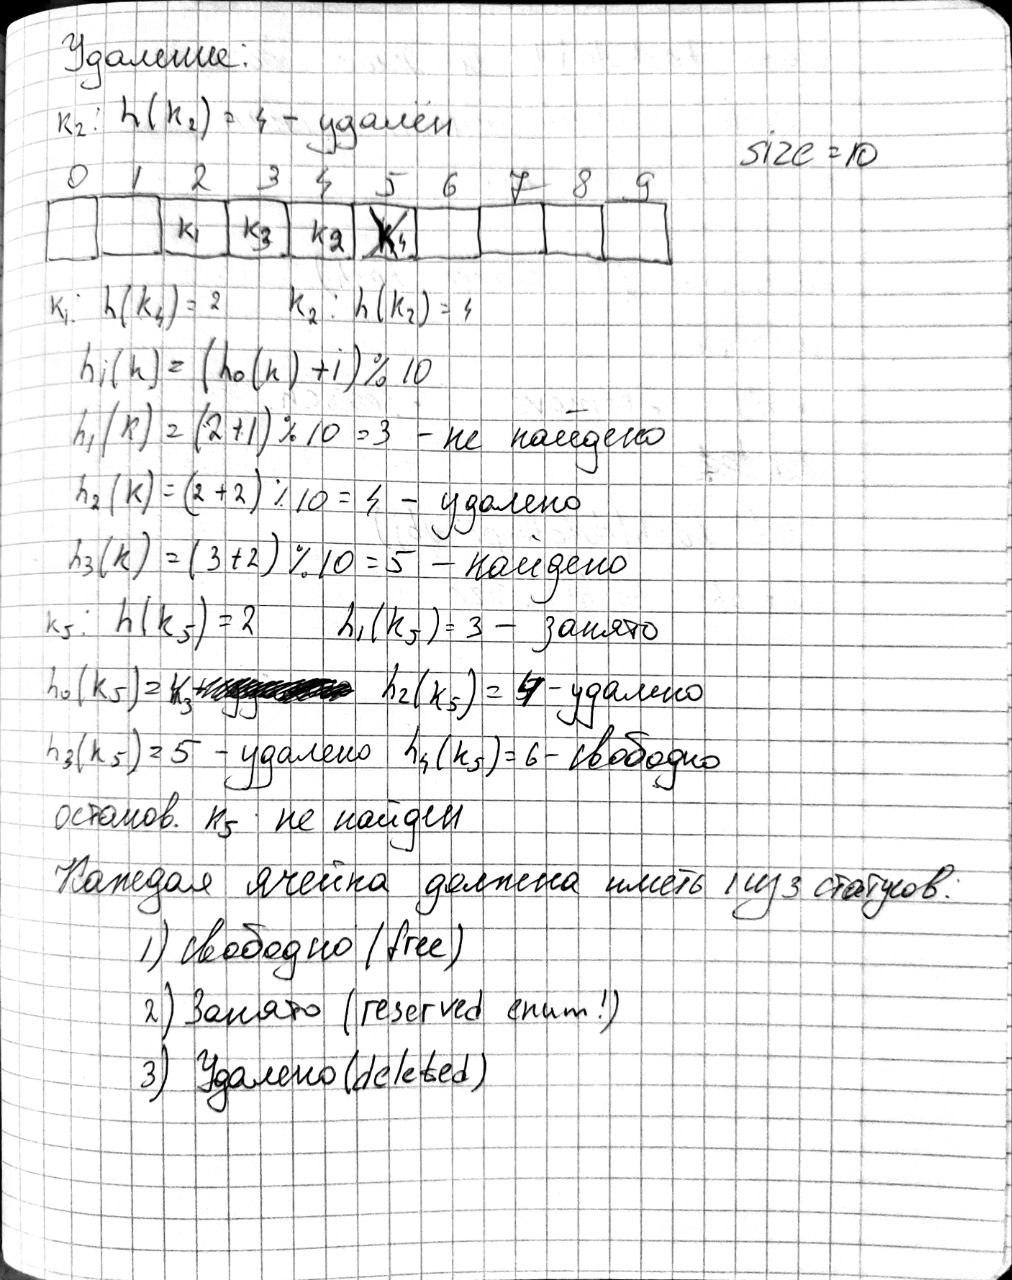 Удаление:
k₂: h(k₂) = 4 - удалён
size = 10
0 1 2 3 4 5 6 7 8 9
k₁ k₃ k₂ k₄
k₁: h(k₄) = 2 k₂: h(k₂) = 4
hi(k) = (h₀(k) + i) % 10
h₁(k) = (2+1) % 10 = 3 - не найдено
h₂(k) = (2+2) % 10 = 4 - удалено
h₃(k) = (3+2) % 10 = 5 - найдено
k₅: h(k₅) = 2 h₁(k₅) = 3 - занято
h₀(k₅) = k₃ h₂(k₅) = 4 - удалено
h₃(k₅) = 5 - удалено h₄(k₅) = 6 - свободно
останов. k₅ не найден
Каждая ячейка должна иметь 1 из 3 статусов:
1) свободно (free)
2) Занято (reserved enum!)
3) Удалено (deleted)